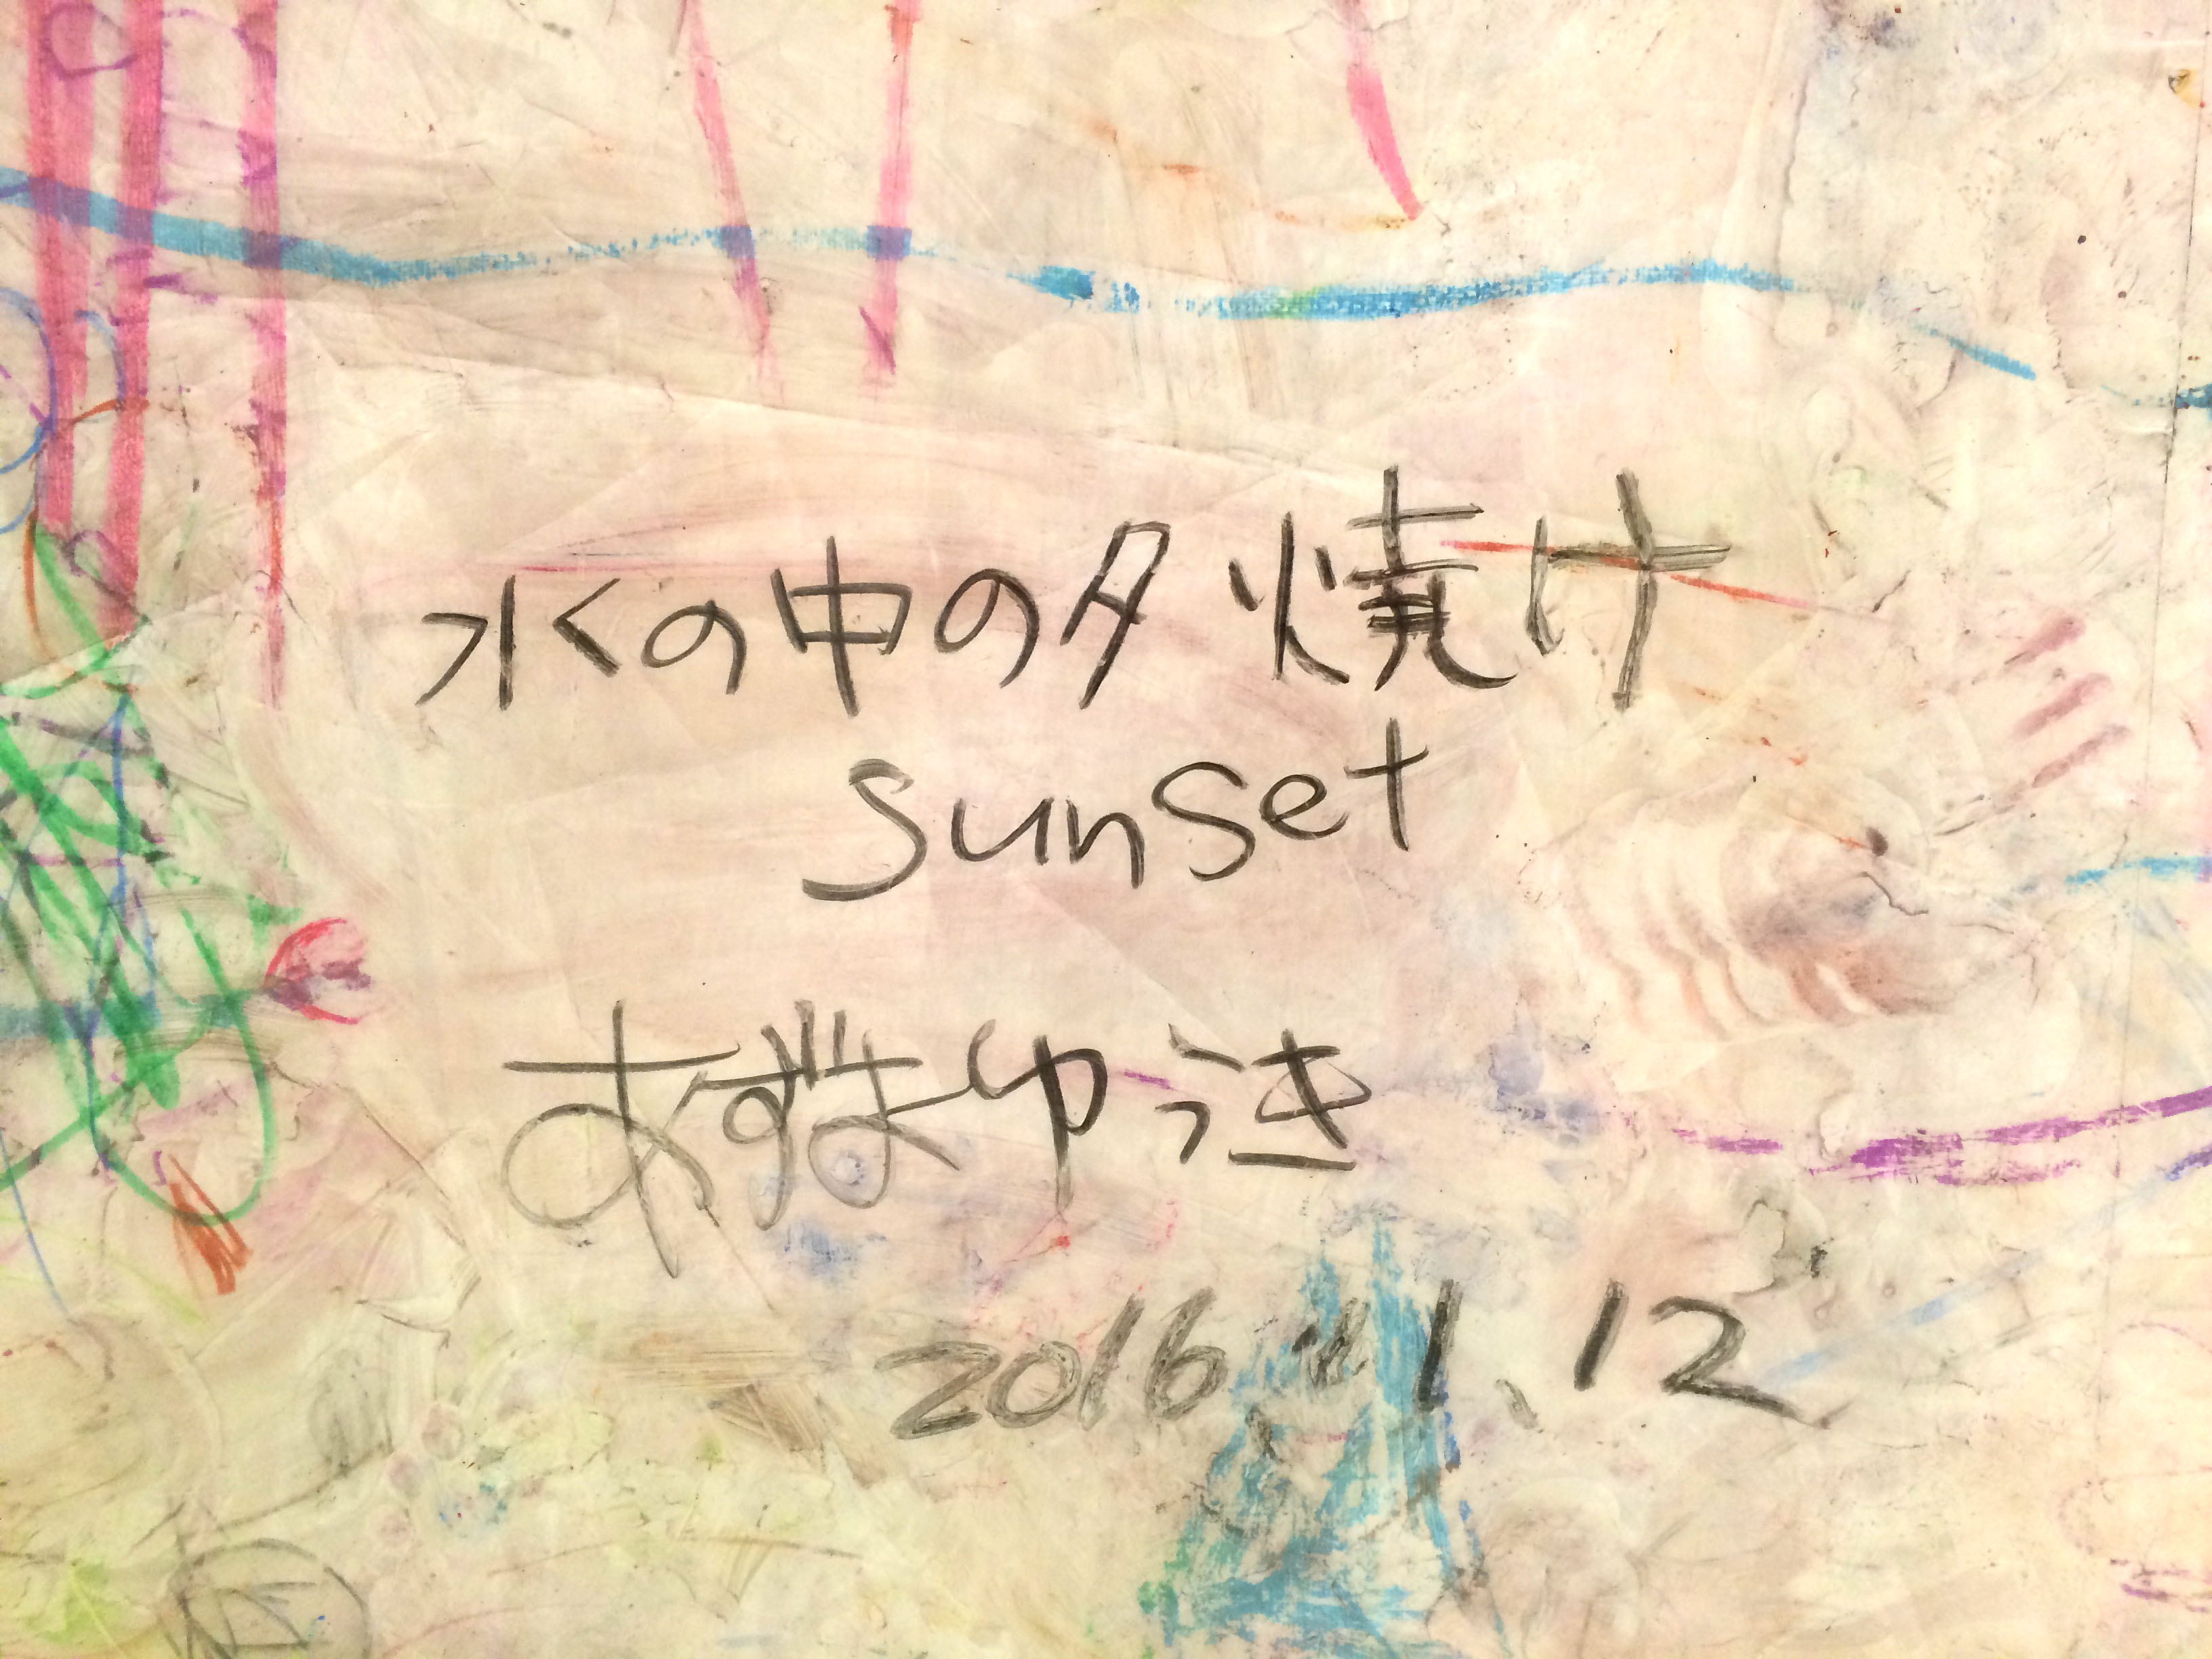 水の中の夕焼け
sunset
あずまゆうき
2016.1.12